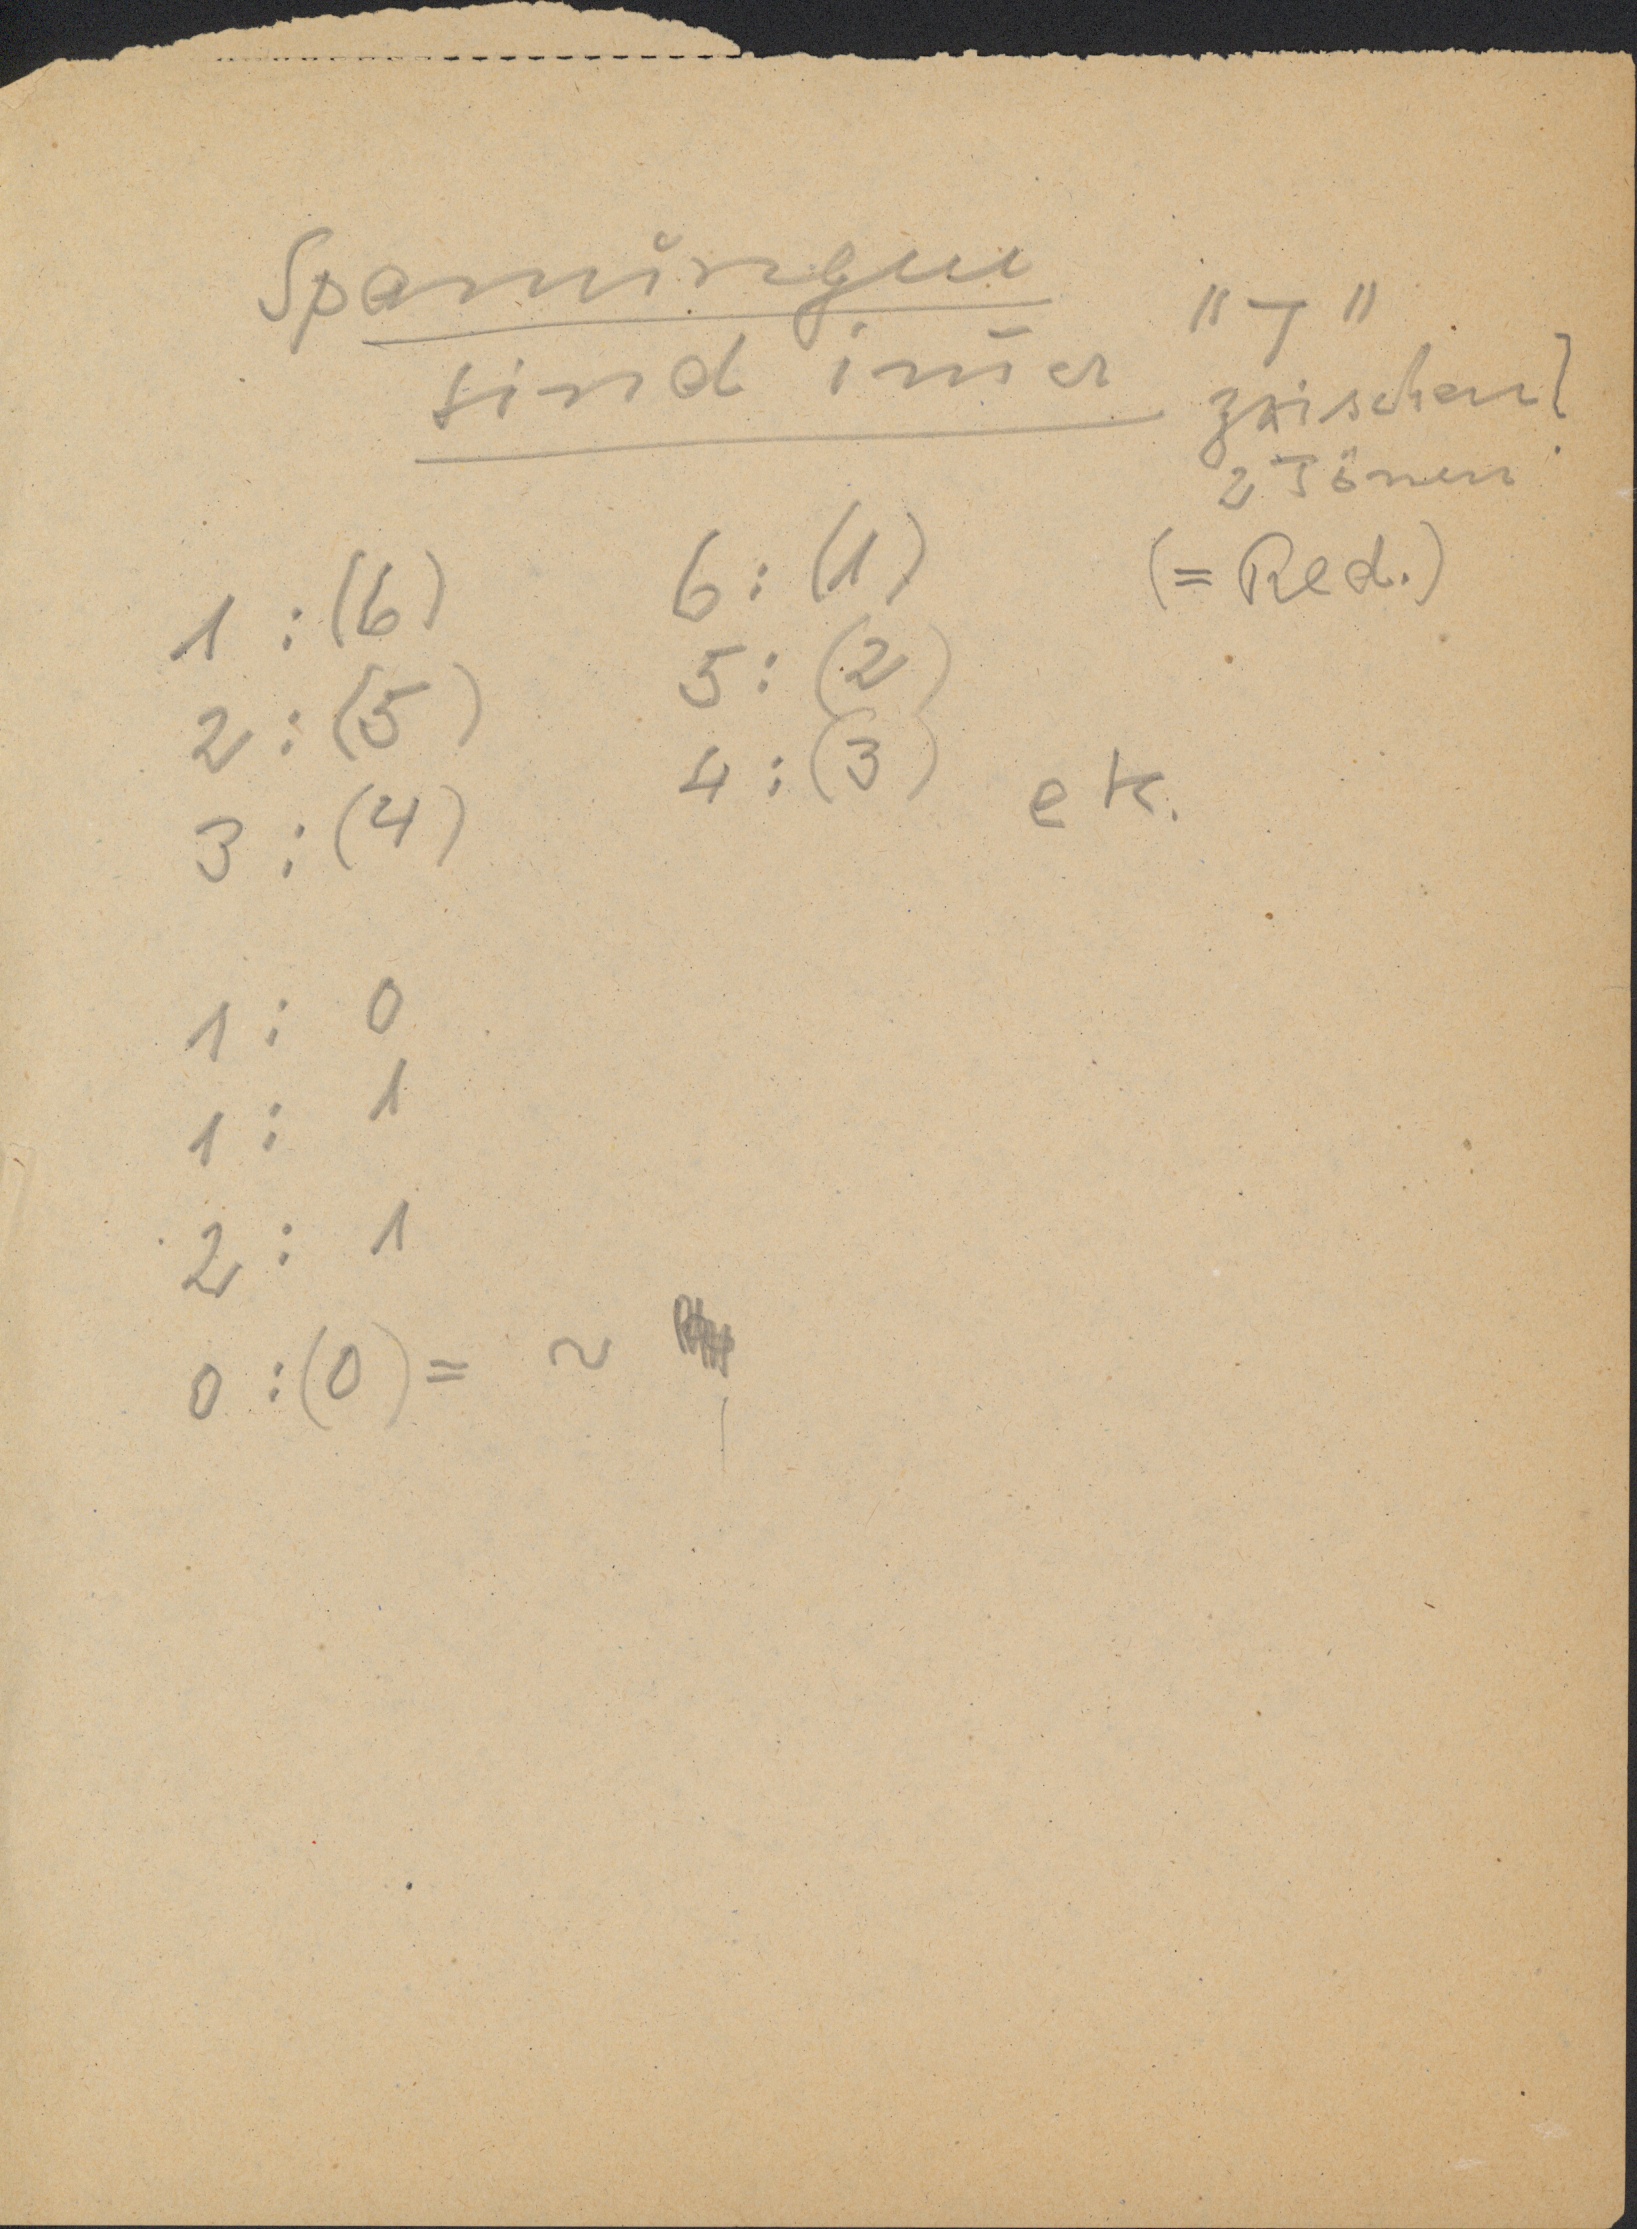 Spannungen
sind im̅er
"⊤"
zwischen
2 Tönen!
(= Red.)
1 : (6) 6 : (1)
2 : (5) 5 : (2)
3 : (4) 4 : (3) etc.
1 : 0
1 : 1
2 : 1
0 : (0) = ~